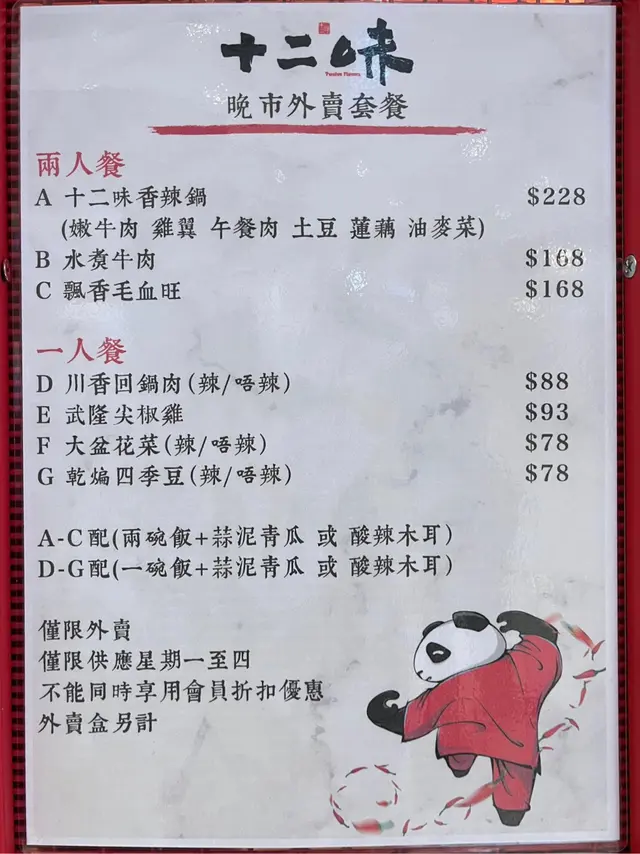 十二味
Twelve Flavors
晚市外賣套餐
兩人餐
A 十二味香辣鍋 $228
(嫩牛肉 雞翼 午餐肉 土豆 蓮藕 油麥菜)
B 水煮牛肉 $168
C 飄香毛血旺 $168
一人餐
D 川香回鍋肉(辣/唔辣) $88
E 武隆尖椒雞 $93
F 大盆花菜(辣/唔辣) $78
G 乾煸四季豆(辣/唔辣) $78
A-C配(兩碗飯+蒜泥青瓜 或 酸辣木耳)
D-G配(一碗飯+蒜泥青瓜 或 酸辣木耳)
僅限外賣
僅限供應星期一至四
不能同時享用會員折扣優惠
外賣盒另計